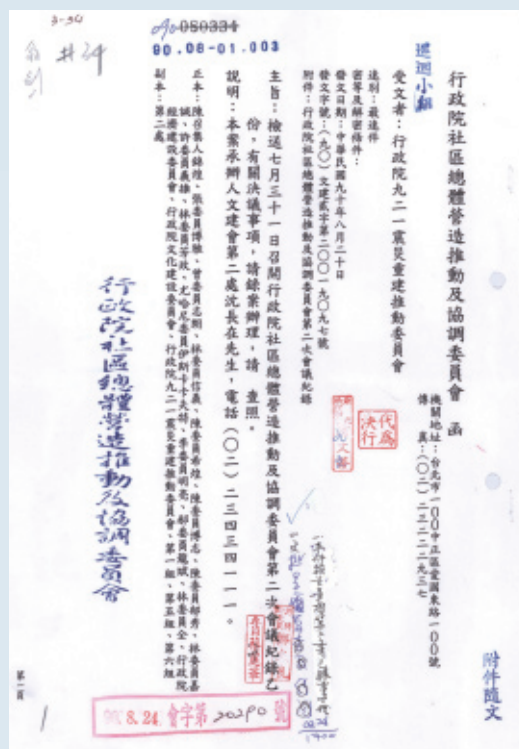 3-94
#24
080334
90.08-01.003
巡迴小組
行政院社區總體營造推動及協調委員會　函
機關地址：台北市一00中正區愛國東路一00號
傳　　真：(0二)二三二二二九三七
受文者：行政院九二一震災重建推動委員會
速別：最速件
密等及解密條件：
發文日期：中華民國九十年八月二十日
發文字號：(九0)文建貳字第二00一九0九七號
附件：行政院社區總體營造推動及協調委員會第二次會議紀錄
代為
決行
主旨：檢送七月三十一日召開行政院社區總體營造推動及協調委員會第二次會議紀錄乙
份，有關決議事項，請錄案辦理，請　查照。
說明：本案承辦人文建會第二處沈長在先生，電話(0二)二三四三四一一一。
正本：陳召集人錦煌、張委員博雅、曾委員志朗、林委員信義、陳委員郝秀、林委員嘉
誠、許委員義雄、林委員芳玫、尤哈尼委員伊斯卡卡夫特、李委員明亮、郝委員龍斌、林委員全、行政院
經濟建設委員會、行政院文化建設委員會、行政院九二一震災重建推動委員會、第一組、第五組、第六組
副本：第二處
行政院社區總體營造推動及協調委員會
附件隨文
第一頁
1
90.8.24.會字第20290號